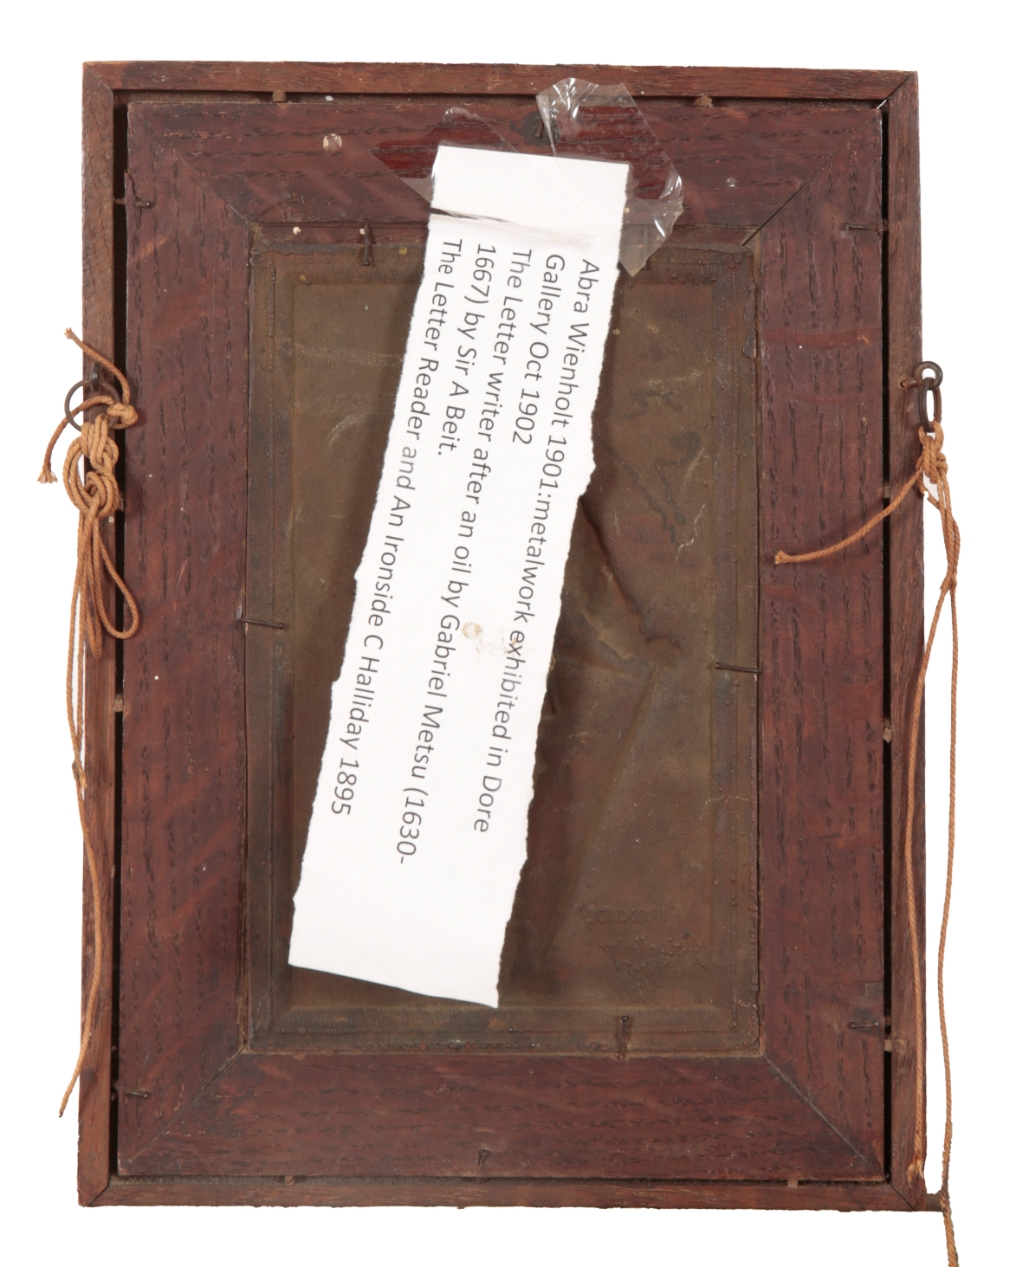 Abra Wienholt 1901:metalwork exhibited in Dore
Gallery Oct 1902
The Letter writer after an oil by Gabriel Metsu (1630-
1667) by Sir A Beit.
The Letter Reader and An Ironside C Halliday 1895